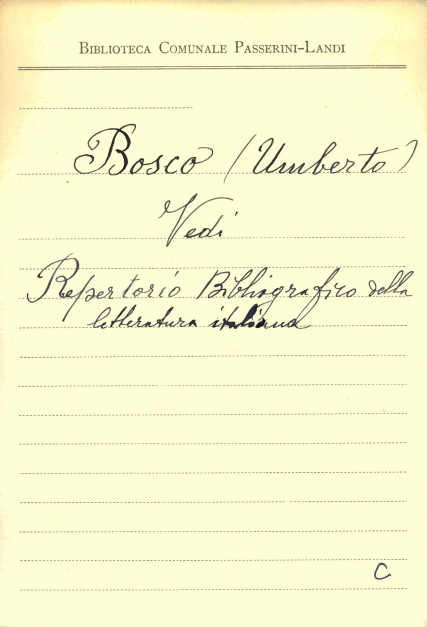 Biblioteca Comunale Passerini-Landi
Bosco (Umberto)
Vedi
Repertorio Bibliografico della
letteratura italiana
C